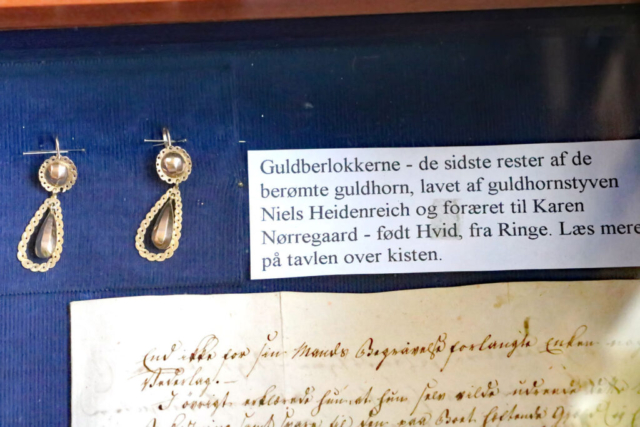 Guldberlokkerne - de sidste rester af de
berømte guldhorn, lavet af guldhornstyven
Niels Heidenreich og foræret til Karen
Nørregaard - født Hvid, fra Ringe. Læs mere
på tavlen over kisten.
End ikke for sin Mands Begravelse forlangte Enken
Vederlag.-
I øvrigt erklærede hun at hun selv vilde udrede